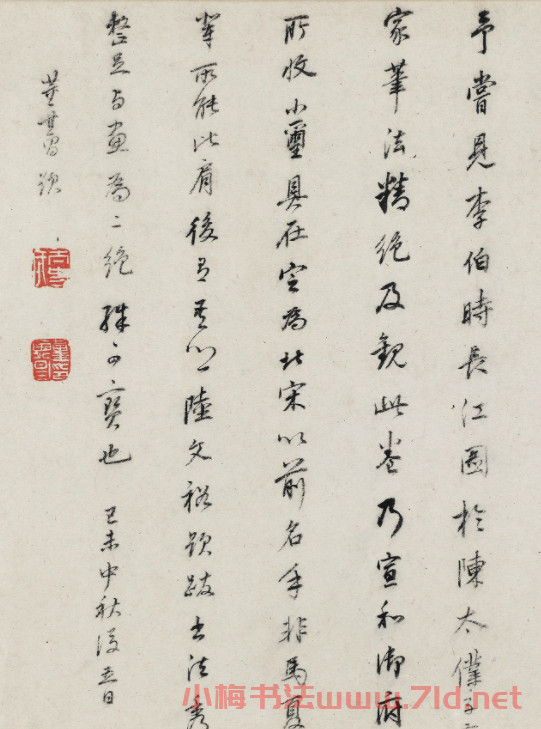 予嘗見李伯時長江圖於陳太僕
家筆法精絕及觀此卷乃宣和御府
所收小璽具在定為北宋以前名手非馬夏
輩所能比肩後有吾鄉陸文裕題跋書法秀
整足与畫為二絕殊可寶也 己未中秋後五日
董其昌題
小梅书法www.7ld.net